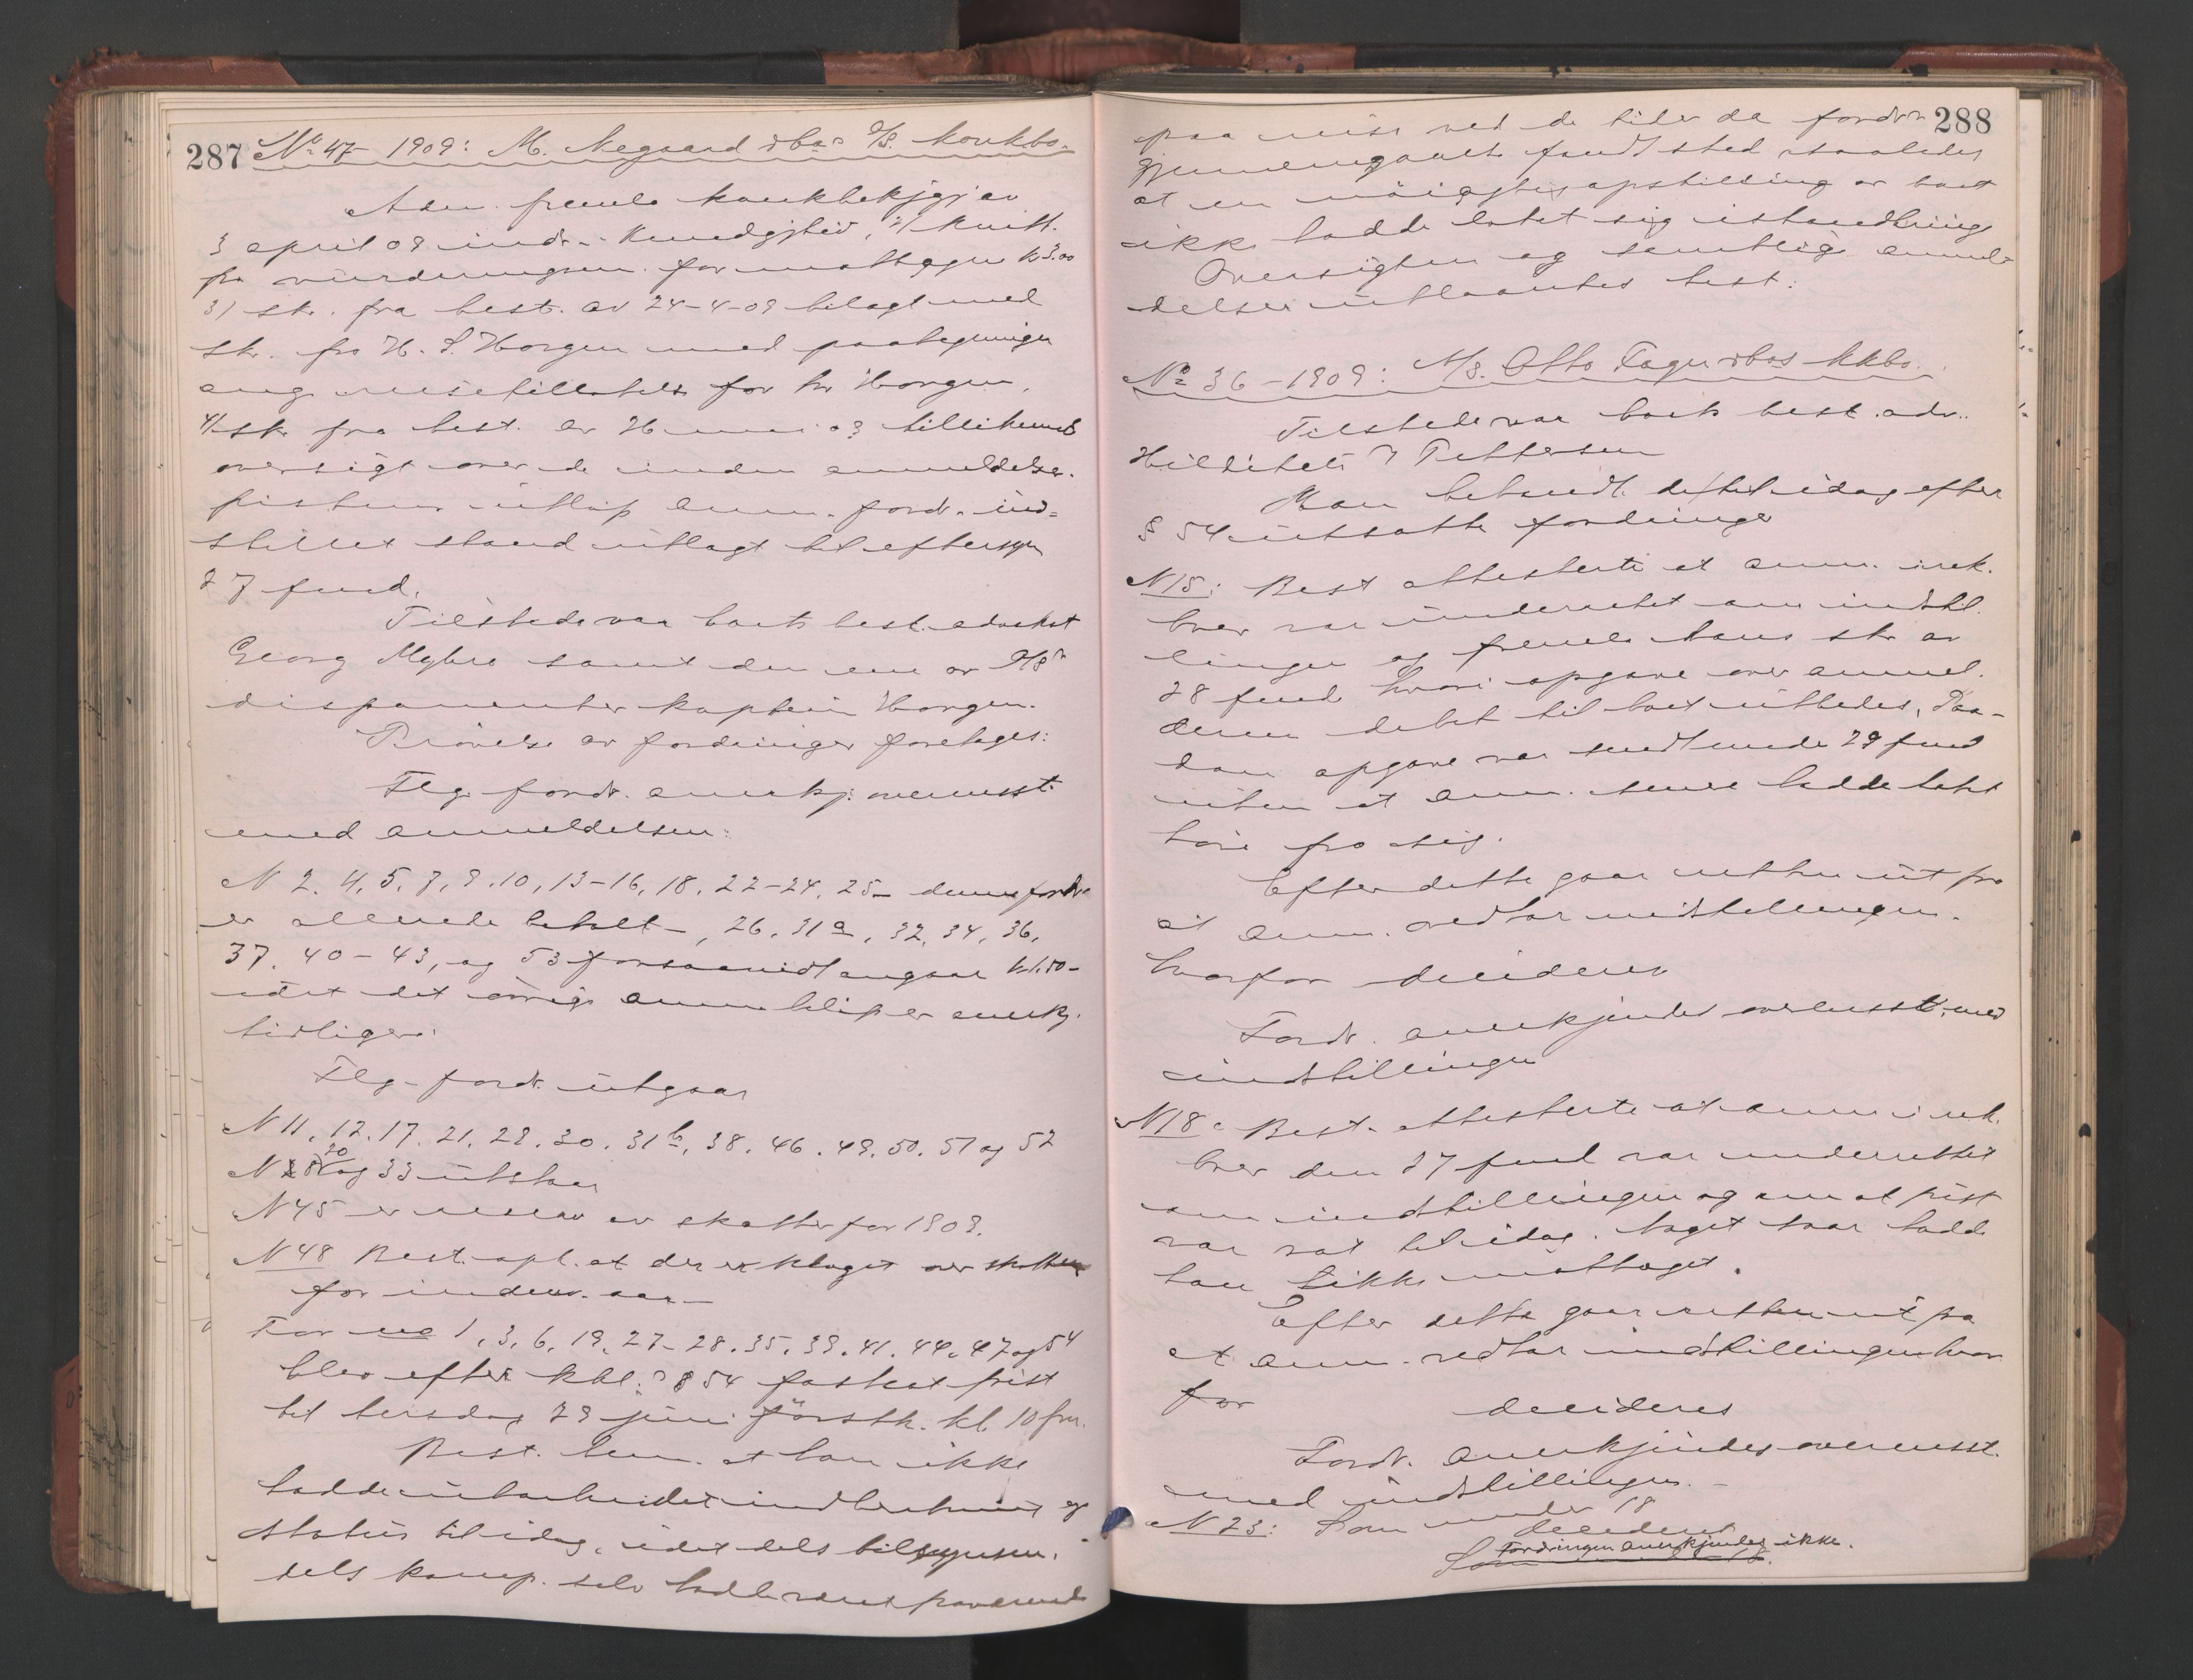 287 No 47 - 1909: M. Negaard & bas A/S. konkbo.
Adm. fremla konkbekjgj av
3 april 09 indr. i Kundgjtid, 2/ kvitt.
fra vurderingsm. for mottagen kr 3.00
3/ skr. fra best. av 24-4-09 bilagt med
skr. fra H. S. Horgen med paategninger
ang reisetillatelse for hr Horgen,
4/ skr fra best. av mai 09 tillikemed
oversigt over de inden anmeldelses-
fristens utløp anm. fordr. ind-
stillet utlagt til eftersyn
27 fmd.
Tilstede var boets best. advokat
Georg Myhre samt den ene av A/S's
disponenter kaptein Horgen.
Prøvelse av fordringer foretages:
Flg. fordr. anerkj. overensst.
med anmeldelsen:
N 2. 4, 5, 7, 9, 10, 13-16, 18, 22-24, 25 - denne fordr
er allerede betalt -, 26, 31 a, 32, 34, 36,
37, 40 - 43, og 53 forsaavidt angaar kr 1.50 -
idet det øvrige anm. beløp er anerkj.
tidligere.
Flg. fordr. utgaar
N 11, 12, 17, 21, 29, 30, 31 b, 38, 46, 49, 50, 51 og 52
N 8 20 og 33 utstaar
N 45 er av skatter for 1909.
N 48 Best. opl. at der er klaget over skatten
for indev. aar -
For no 1, 3, 6, 19, 27 - 28, 35, 39, 41, 44, 47 og 54
blev efter kkl.s § 54 fastsat frist
til tirsdag 29 juni førstk. kl. 10 fm.
Best. bem. at han ikke
hadde utarbeidet indberetning og
status til idag, idet dels tilsynsm.
dels komp. selv hadde været fraværende
288
paa reise ved de tider da fordr
gjennemgaaelse fandt sted saaledes
at en nøiagtig opstilling av boet
ikke hadde latet sig istandbringe
Oversigten og samtlige anmel-
delser utlaantes best.
No 36 - 1909: A/S. Otto Fagerdbas kkbo.
Tilstede var boets best. adv.
Hilditch Pettersen
Man behandl. de til idag efter
§ 54 utsatte fordringer
N 15: Best attesterte at anm. i rek.
brev var underrettet om indstil-
lingen og fremla hans skr av
28 fmd hvori opgave over anmel-
derens debet til boet utbedes, Saa-
dan opgave var sendt mede 29 fmd
uten at anm. senere hadde latt
høre fra sig.
Efter dette gaar retten ut fra
at anm. vedtar indstillingen.
hvorfor decideres
Fordr. anerkjendes overensst. med
indstillingen
N 18: Best. attesterte at anm i rek.
brev den 27 fmd var underrettet
om indstillingen og om at frist
var sat til idag. Noget svar hadde
han ikke mottaget.
Efter dette gaar retten ut fra
at anm. vedtar indstillingen hvor
for decideres
Fordr. anerkjendes overensst.
med indstillingen. -
N 23: Som under 18
decideres
Fordringen anerkjendes ikke.
Som